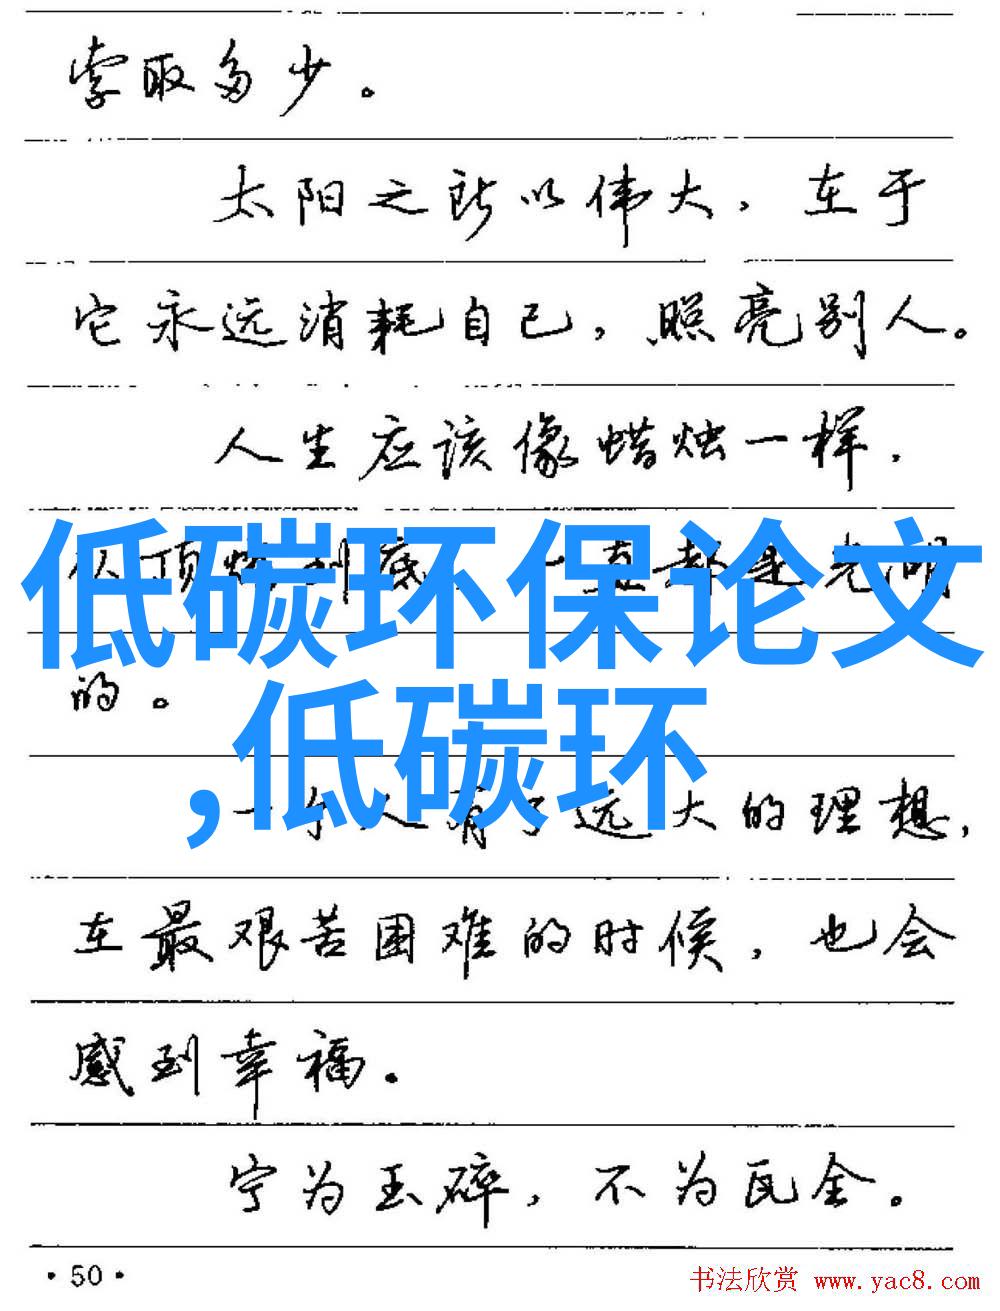 索取多少。
太阳之所以伟大，在于
它永远消耗自己，照亮别人。
人生应该像蜡烛一样，
从顶燃到底，一直都是光明
低碳环保论文
的。
,低碳环
一个人有了远大的理想，
在最艰苦困难的时候，也会
感到幸福。
宁为玉碎，不为瓦全。
·50·
书法欣赏 www.yac8.com